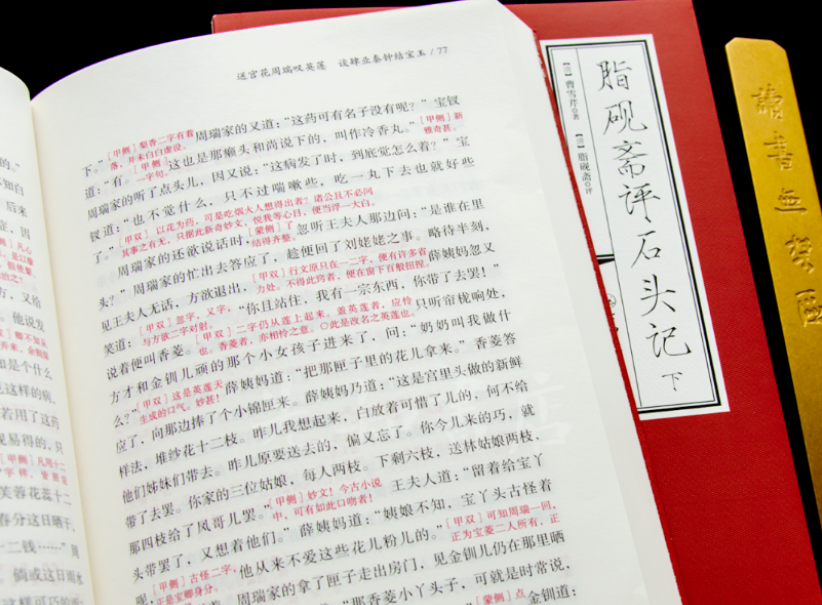 送宫花周瑞叹英莲 谈肄业秦钟结宝玉 / 77
下。”[甲侧]梨香二字有着落，并未白白虚设。周瑞家的又道：“这药可有名子没有呢？”宝钗
道：“有。[甲侧]一字句。这也是那癞头和尚说下的，叫作冷香丸。”[甲侧]新雅奇甚。
周瑞家的听了点头儿，因又说：“这病发了时，到底觉怎么着？”宝
钗道：“也不觉什么，只不过喘嗽些，吃一丸下去也就好些
了。”[甲双]以花为药，可是吃烟火人想得出者？诸公且不必问其事之有无，只据此新奇妙文，悦我等心目，便当浮一大白。
周瑞家的还欲说话时，[蒙侧]了结得齐整。忽听王夫人那边问：“是谁在里
头？”周瑞家的忙出去答应了，趁便回了刘姥姥之事。略待半刻，
见王夫人无话，方欲退出，[甲双]行文原只在一二字，便有许多省力处。不得此窍者，便在窗下百般扭捏。薛姨妈忽又
笑道：[甲双]忽字，又字，与方欲二字对射。“你且站住，我有一宗东西，你带了去罢！”
说着便叫香菱。[甲双]二字仍从莲上起来。盖英莲者，应怜也。香菱者，亦相怜之意。○此是改名之英莲也。只听帘栊响处，
方才和金钏儿顽的那个小女孩子进来了，问：“奶奶叫我做什
么？”[甲侧]这是英莲天生成的口气。妙甚！薛姨妈道：“把那匣子里的花儿拿来。”香菱答
应了，向那边捧了个小锦匣来。薛姨妈乃道：“这是宫里头做的新鲜
样法，堆纱花十二枝。昨儿我想起来，白放着可惜了儿的，何不给
他们姊妹们带去。昨儿原要送去的，偏又忘了。你今儿来的巧，就
带了去罢。你家的三位姑娘，每人两枝。下剩六枝，送林姑娘两枝，
那四枝给了凤哥儿罢。”[甲侧]妙文！今古小说中，可有如此口吻者！王夫人道：“留着给宝丫
头带罢了，又想着他们。”薛姨妈道：“姨娘不知，宝丫头古怪着
呢，[甲侧]古怪二字，正是宝卿身分。他从来不爱这些花儿粉儿的。”[甲双]可知周瑞一回，正为宝菱二人所有，正
周瑞家的拿了匣子走出房门，见金钏儿仍在那里晒
那香菱小丫头子，可就是时常说，
[蒙侧]点
金钏道：
[清]曹雪芹 著
[清]脂砚斋 评
脂砚斋评石头记
下
的。”
不知白
后来
方，又给
他说发
和是个什么
说这样的病，
若用了这药
现易得的，只
[甲侧]凡用十二
芙蓉花蕊十二
春分这日晒干，
二钱……”周
倘或这日雨水
这样可巧的
讀書